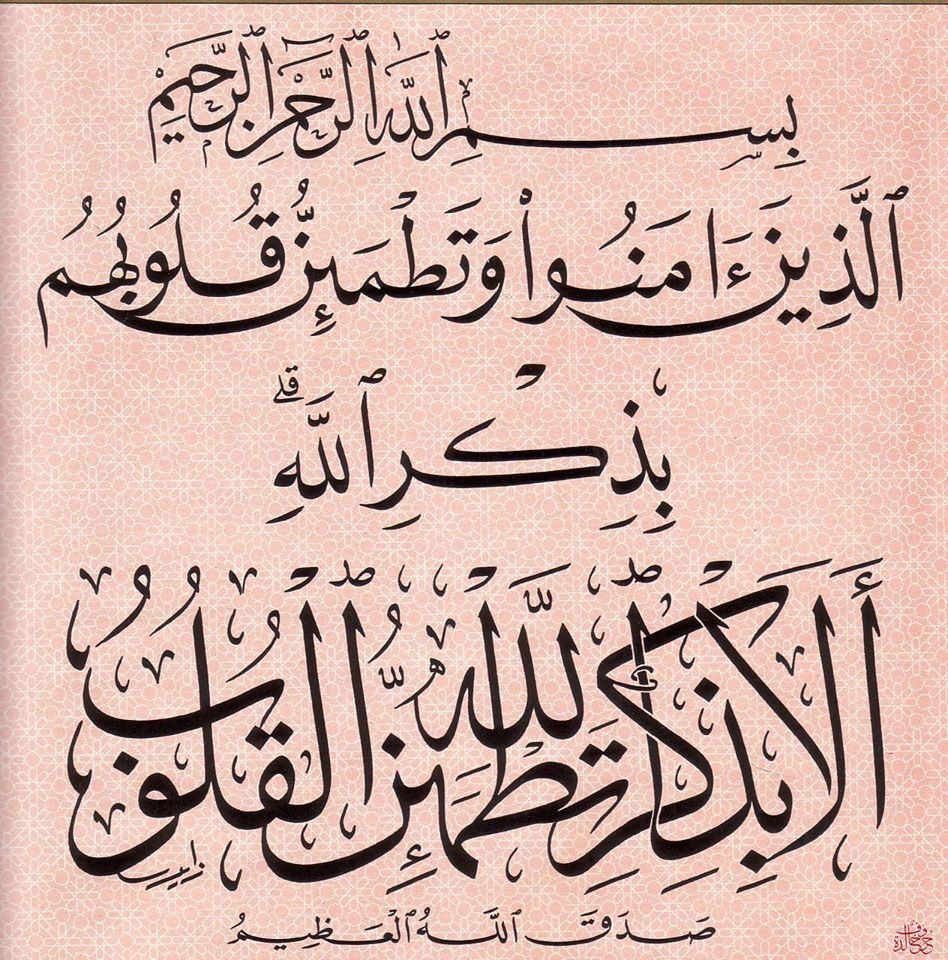 بِسْمِ ٱللَّهِ ٱلرَّحْمَٰنِ ٱلرَّحِيمِ
ٱلَّذِينَ ءَامَنُوا۟ وَتَطْمَئِنُّ قُلُوبُهُم
بِذِكْرِ ٱللَّهِ ۗ
أَلَا بِذِكْرِ ٱللَّهِ تَطْمَئِنُّ ٱلْقُلُوبُ
صَدَقَ ٱللَّهُ ٱلْعَظِيمُ
حروف خالدة